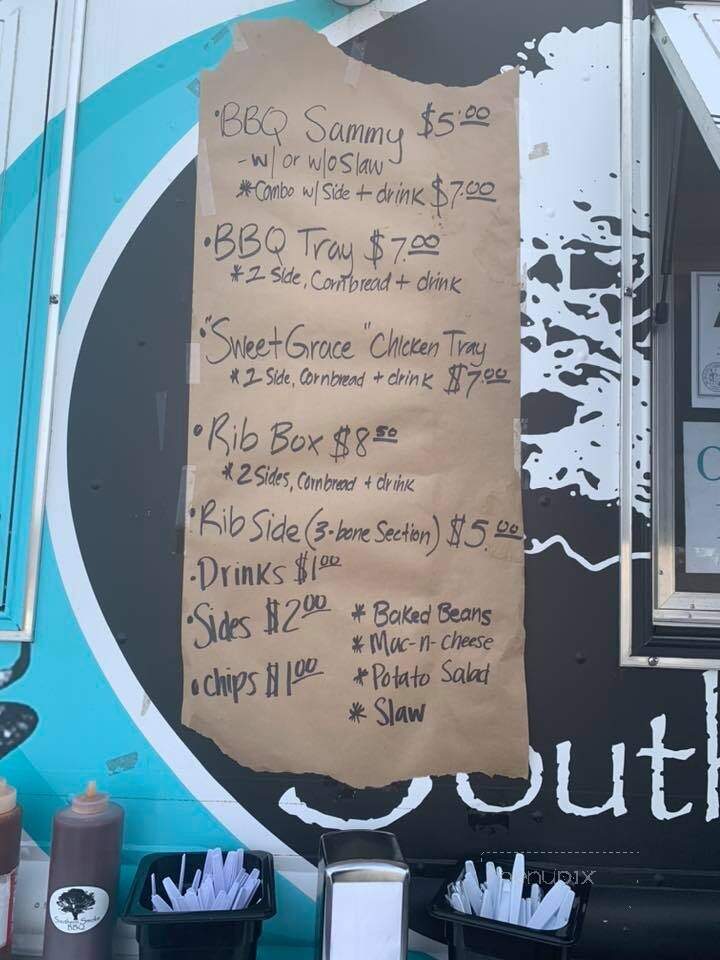 •BBQ Sammy $5.00
-w/ or w/o Slaw
*Combo w/ Side + drink $7.00
•BBQ Tray $7.00
*1 Side, Cornbread + drink
•"Sweet Grace" Chicken Tray
*1 Side, Cornbread + drink $7.00
•Rib Box $8.50
*2 Sides, Cornbread + drink
•Rib Side (3-bone Section) $5.00
•Drinks $1.00
•Sides $2.00
* Baked Beans
* Mac-n-cheese
•chips $1.00
* Potato Salad
* Slaw
South
Southern Smoke
BBQ
menupix